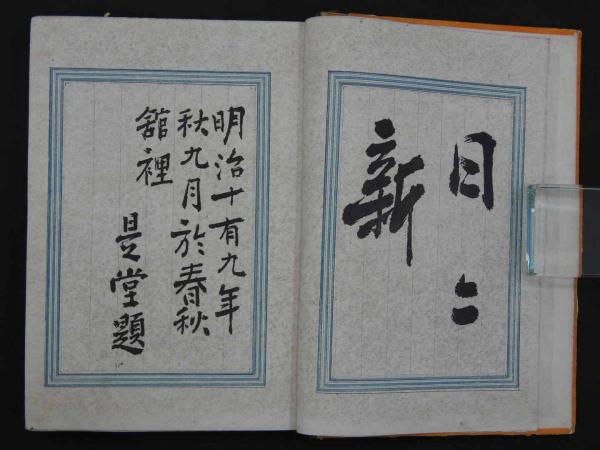 日〻
新
明治十有九年
秋九月於春秋
舘裡
是堂題